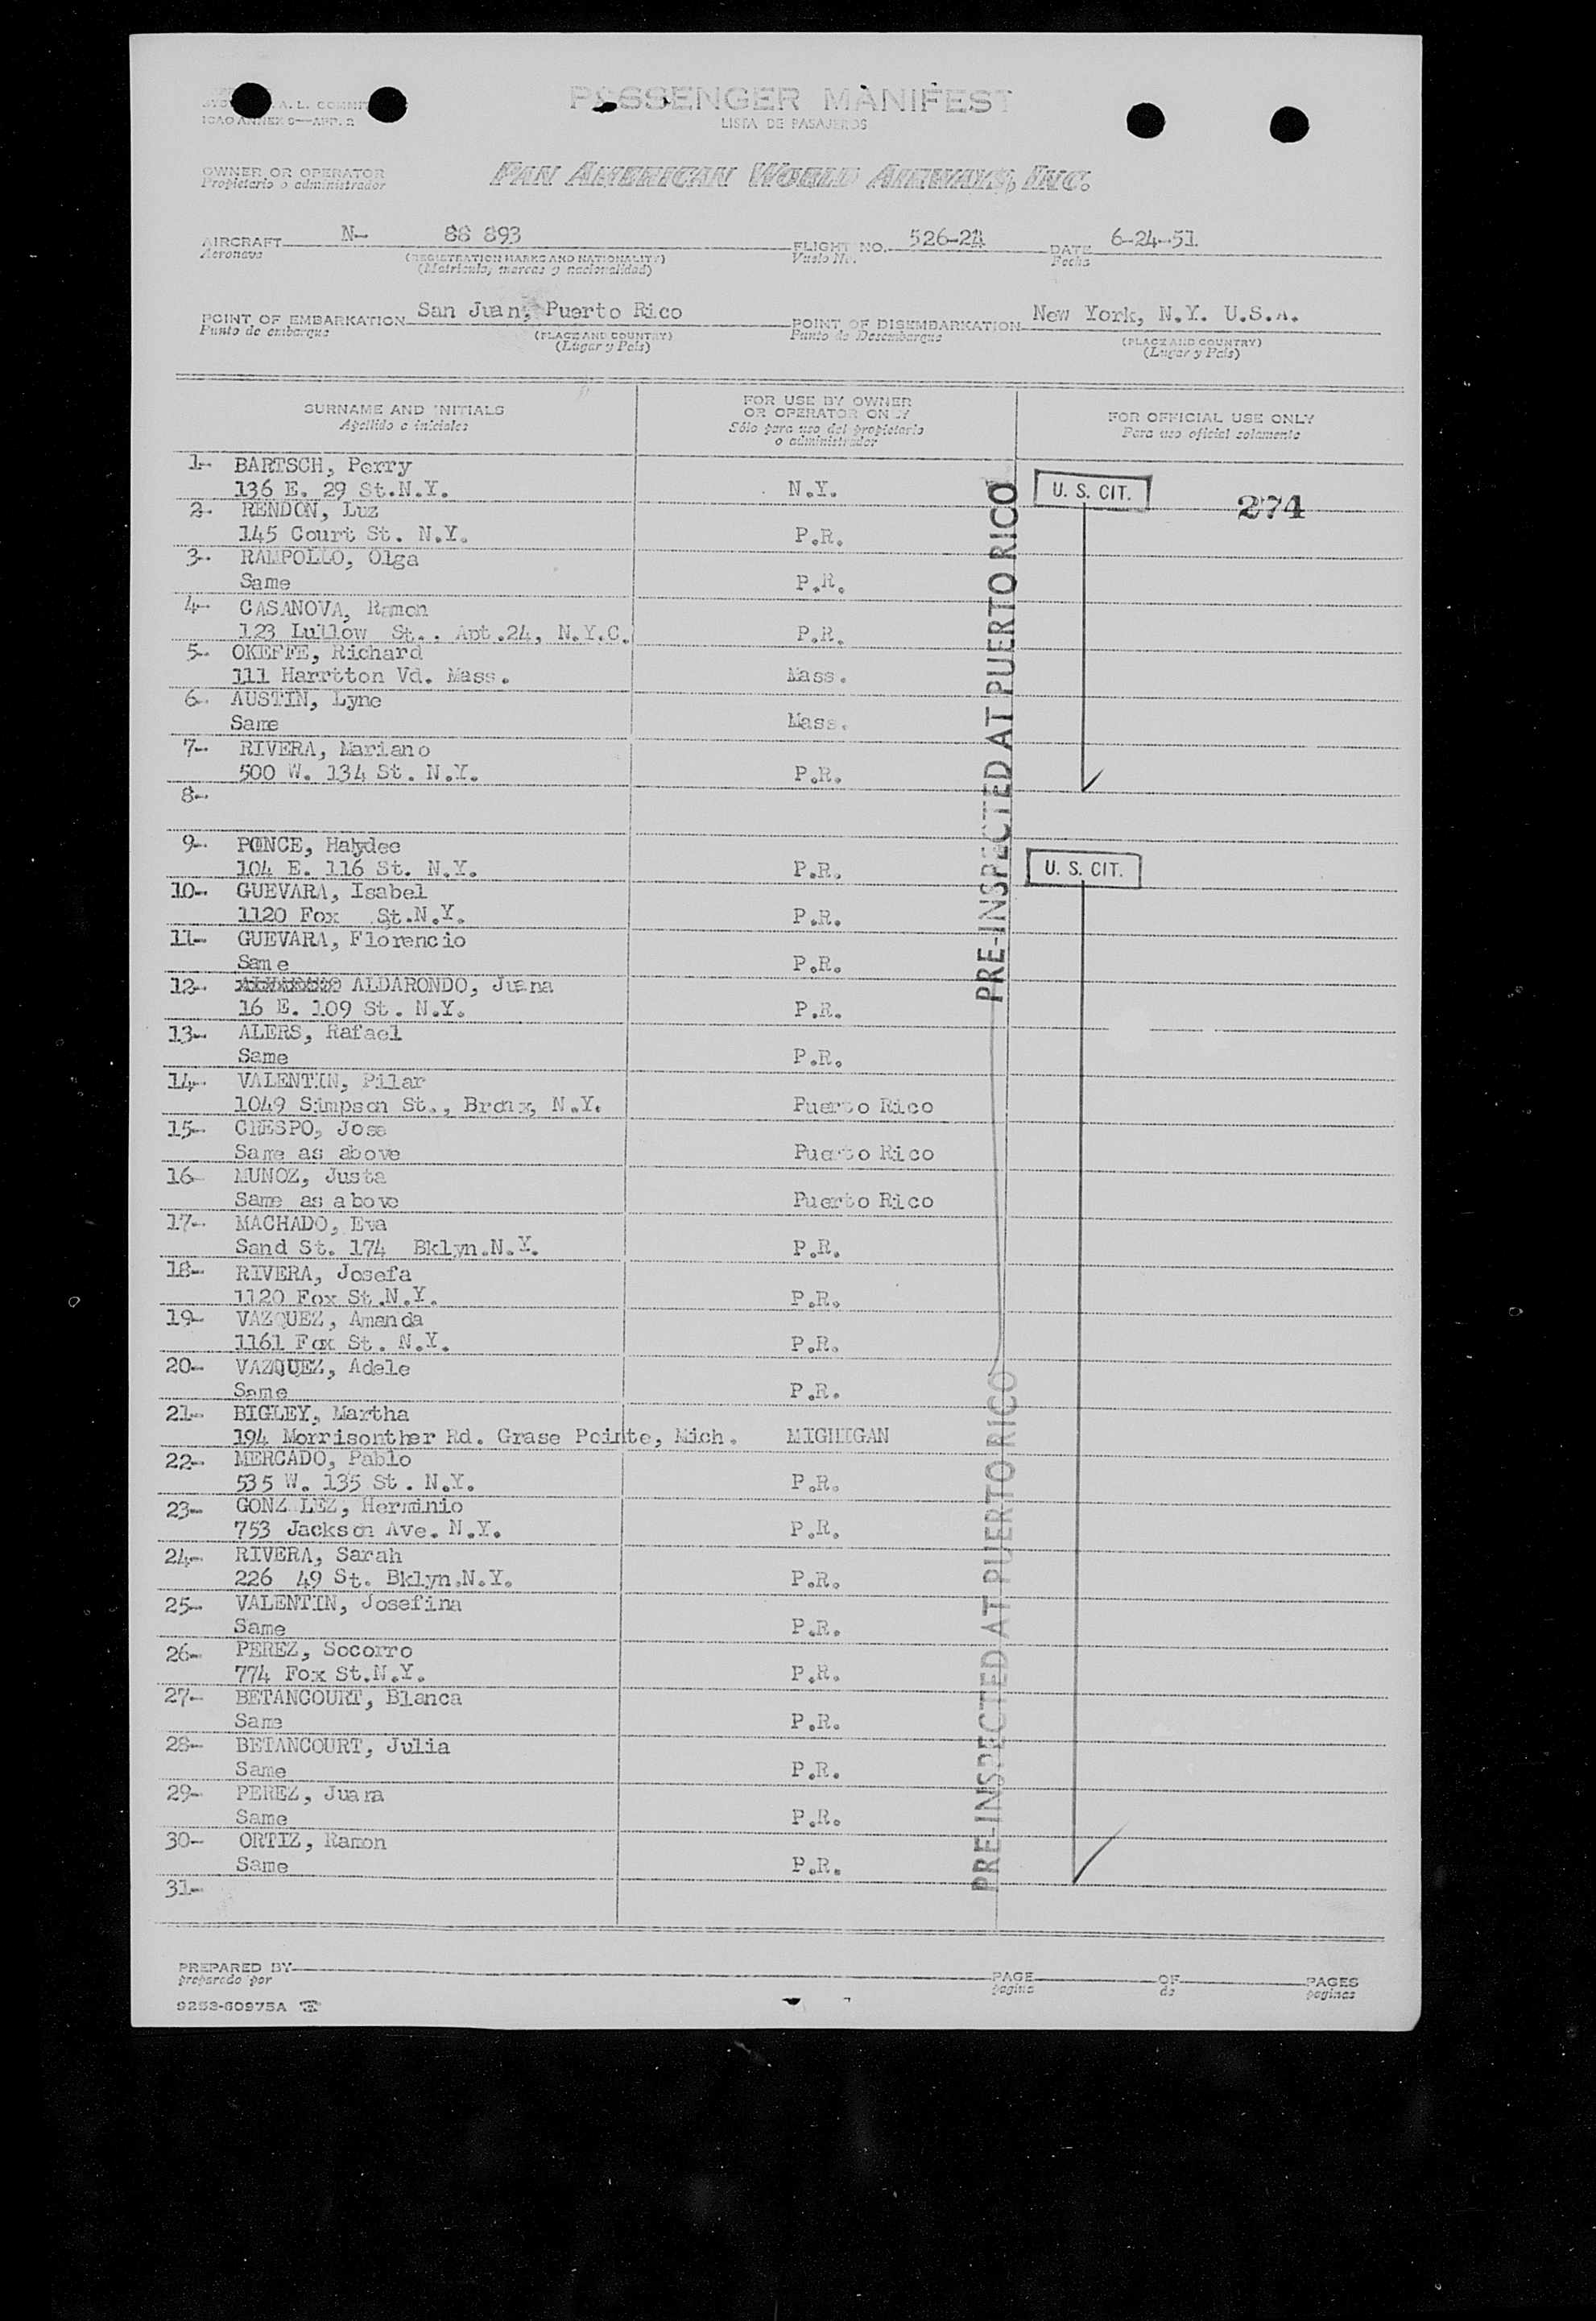 A. L. COMMIT
ICAO ANNEX 9—APP. 2
PASSENGER MANIFEST
LISTA DE PASAJEROS
OWNER OR OPERATOR
Propietario o administrador
PAN AMERICAN WORLD AIRWAYS, INC.
AIRCRAFT N- 88 893 FLIGHT NO. 526-24 DATE 6-24-51
Aeronave (REGISTRATION MARKS AND NATIONALITY) Vuelo No. Fecha
(Matricula, marcas y nacionalidad)
POINT OF EMBARKATION San Juan, Puerto Rico POINT OF DISEMBARKATION New York, N.Y. U.S.A.
Punto de embarque (PLACE AND COUNTRY) Punto de Desembarque (PLACE AND COUNTRY)
(Lugar y País) (Lugar y País)
SURNAME AND INITIALS FOR USE BY OWNER OR OPERATOR ONLY FOR OFFICIAL USE ONLY
Apellido e iniciales Sólo para uso del propietario o administrador Para uso oficial solamente
1- BARTSCH, Perry
136 E. 29 St.N.Y. N.Y. U. S. CIT. 274
2- RENDON, Luz
145 Court St. N.Y. P.R.
3- RAMPOLLO, Olga
Same P.R.
4- CASANOVA, Ramon
123 Lullow St.. Apt.24, N.Y.C. P.R.
5- OKEFFE, Richard
111 Harrtton Vd. Mass. Mass.
6- AUSTIN, Lyne
Same Mass.
7- RIVERA, Mariano
500 W. 134 St. N.Y. P.R.
8-
9- PONCE, Haydee
104 E. 116 St. N.Y. P.R. U. S. CIT.
10- GUEVARA, Isabel
1120 Fox St.N.Y. P.R.
11- GUEVARA, Florencio
Same P.R.
12- ALDARONDO, Juana
16 E. 109 St. N.Y. P.R.
13- ALERS, Rafael
Same P.R.
14- VALENTIN, Pilar
1049 Simpson St., Bronx, N.Y. Puerto Rico
15- CRESPO, Jose
Same as above Puerto Rico
16- MUNOZ, Justa
Same as above Puerto Rico
17- MACHADO, Eva
Sand St. 174 Bklyn.N.Y. P.R.
18- RIVERA, Josefa
1120 Fox St.N.Y. P.R.
19- VAZQUEZ, Amanda
1161 Fox St. N.Y. P.R.
20- VAZQUEZ, Adele
Same P.R.
21- BIGLEY, Martha
194 Morrisonther Rd. Grase Pointe, Mich. MICHIGAN
22- MERCADO, Pablo
535 W. 135 St. N.Y. P.R.
23- GONZ LEZ, Herminio
753 Jackson Ave. N.Y. P.R.
24- RIVERA, Sarah
226 49 St. Bklyn.N.Y. P.R.
25- VALENTIN, Josefina
Same P.R.
26- PEREZ, Socorro
774 Fox St.N.Y. P.R.
27- BETANCOURT, Blanca
Same P.R.
28- BETANCOURT, Julia
Same P.R.
29- PEREZ, Juana
Same P.R.
30- ORTIZ, Ramon
Same P.R.
31-
PRE-INSPECTED AT PUERTO RICO
PRE-INSPECTED AT PUERTO RICO
PREPARED BY PAGE OF PAGES
preparado por pagina de paginas
9253-60975A